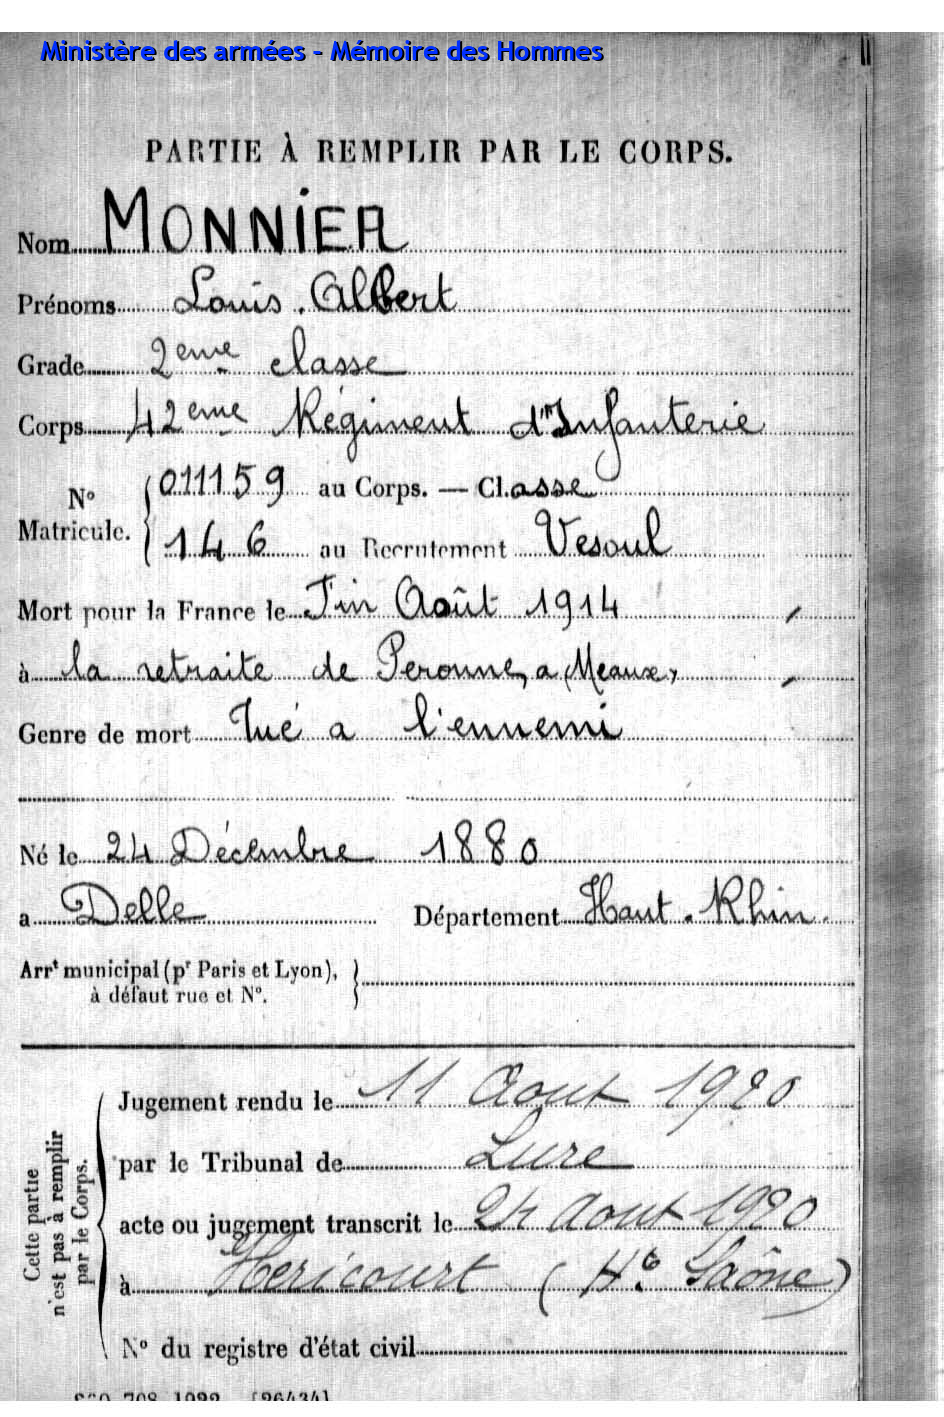 Ministère des armées - Mémoire des Hommes
PARTIE À REMPLIR PAR LE CORPS.
Nom MONNIER
Prénoms Louis. Albert
Grade 2eme classe
Corps 42eme Régiment d'Infanterie
N° Matricule. { 011159 au Corps. — Cl.asse
146 au Recrutement Vesoul
Mort pour la France le Fin Août 1914
à la retraite de Peronne, a Meaux,
Genre de mort Tué a l'ennemi
Né le 24 Décembre 1880
a Delle Département Haut-Rhin.
Arrt municipal (pr Paris et Lyon),
à défaut rue et N°.
Cette partie n'est pas à remplir par le Corps.
Jugement rendu le 11 Aout 1920
par le Tribunal de Lure
acte ou jugement transcrit le 24 Aout 1920
à Héricourt (Hte Saône)
N° du registre d'état civil
708 1922 [26434]